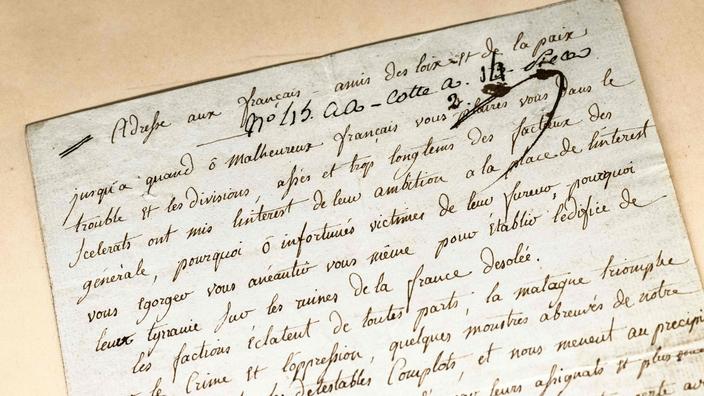 Adresse aux français amis des loix et de la paix
No 413. aa - cotte a. 14
2
jusqu'a quand ô malheureux français vous plaires vous dans le
trouble et les divisions, assés et trop longtems des factieux des
scelerats ont mis linterest de leur ambition a la place de linterest
générale, pourquoi ô infortunés victimes de leur fureur, pourquoi
vous egorger vous anéantir vous même pour établir lédifice de
leur tyranie sur les ruines de la france desolée.
les factions éclatent de toutes parts, la montagne triomphe
le Crime et loppression, quelques monstres abreuvés de notre
detestables Complots, et nous menent au precipi
leurs assignats et plus